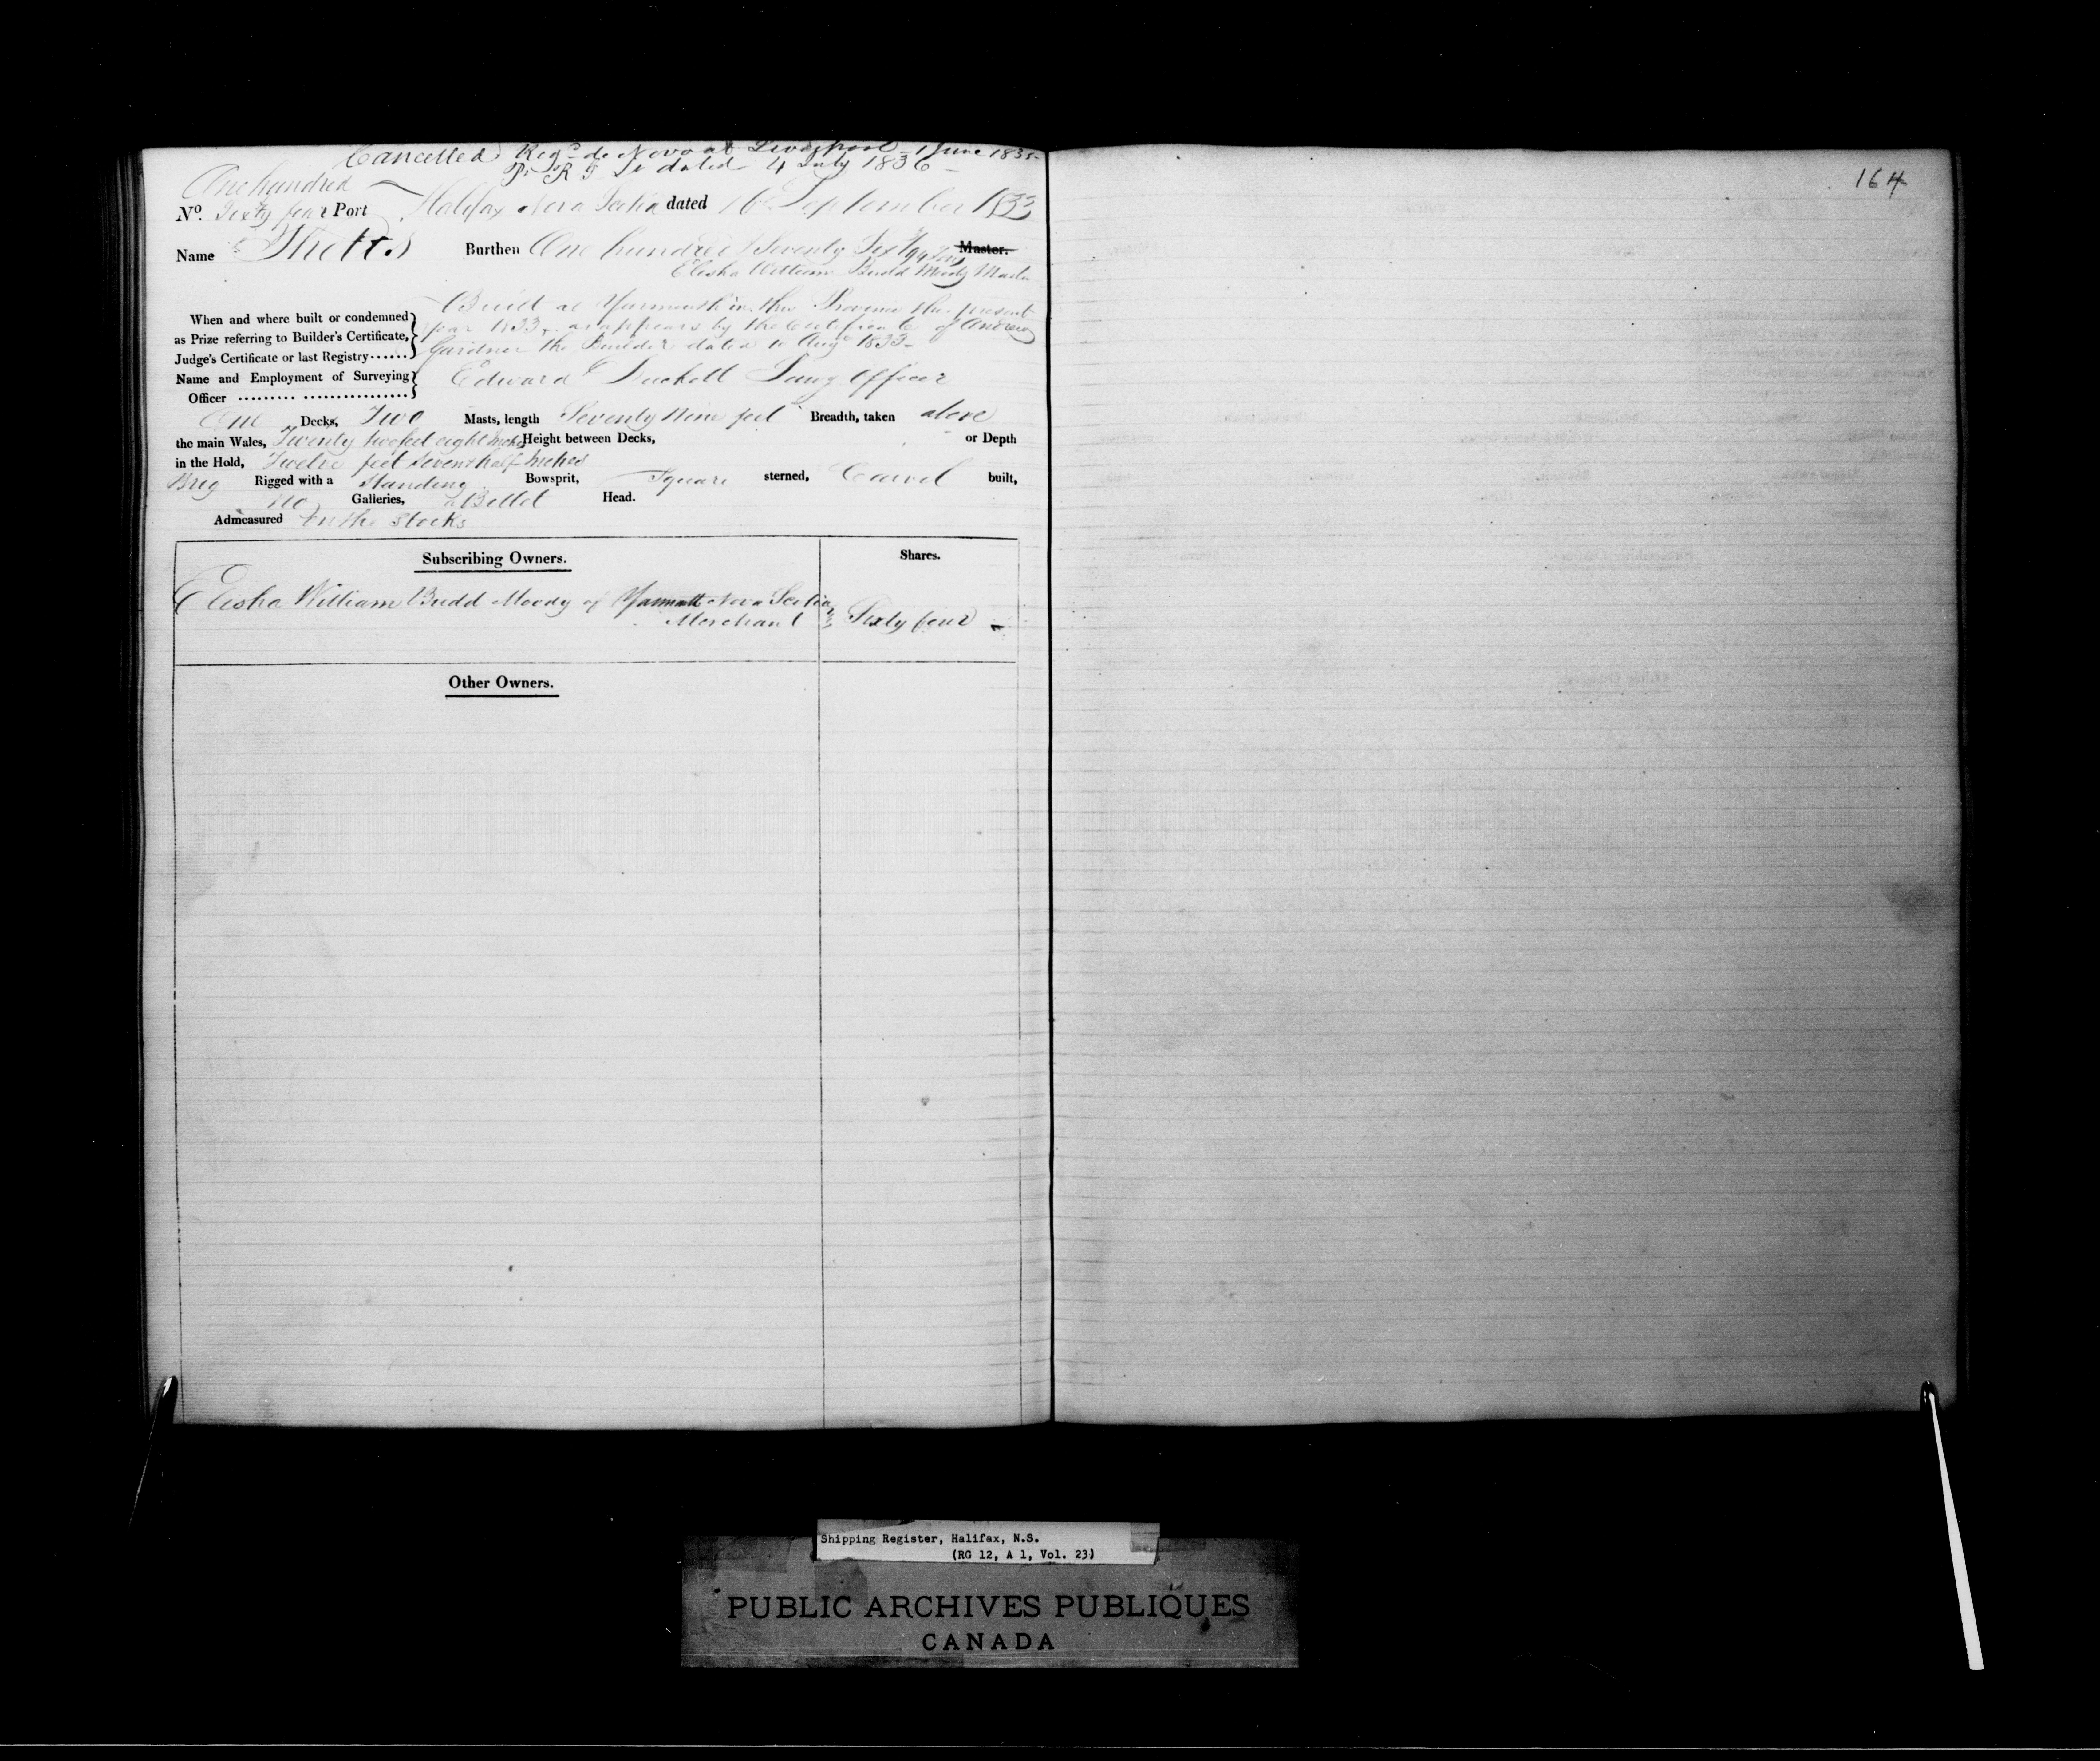 Cancelled Regd de Novo at Liverpool 1 June 1835
dated 4 July 1836
164
One hundred
No. Sixty four Port Halifax Nova Scotia dated 16 September 1833
Name Burthen One hundred & Seventy Six Master.
Elisha William Budd Moody Master
Built at Yarmouth in this Province this present
When and where built or condemned
year 1833, as appears by the Certificate of Andrew
as Prize referring to Builder's Certificate,
Gardner the Builder dated 10 Augt 1833
Judge's Certificate or last Registry
Name and Employment of Surveying
Officer Edward Officer
One Decks, Two Masts, length Seventy Nine feet Breadth, taken above
the main Wales, Twenty two feet eight Inches Height between Decks, or Depth
in the Hold, Twelve feet Seven & half Inches
Brig Rigged with a Standing Bowsprit, Square sterned, Carvel built,
No Galleries, a Billet Head.
Admeasured On the Stocks
Subscribing Owners. Shares.
Elisha William Budd Moody of Yarmouth Nova Scotia
Merchant Sixty four
Other Owners.
Shipping Register, Halifax, N.S.
(RG 12, A 1, Vol. 23)
PUBLIC ARCHIVES PUBLIQUES
CANADA